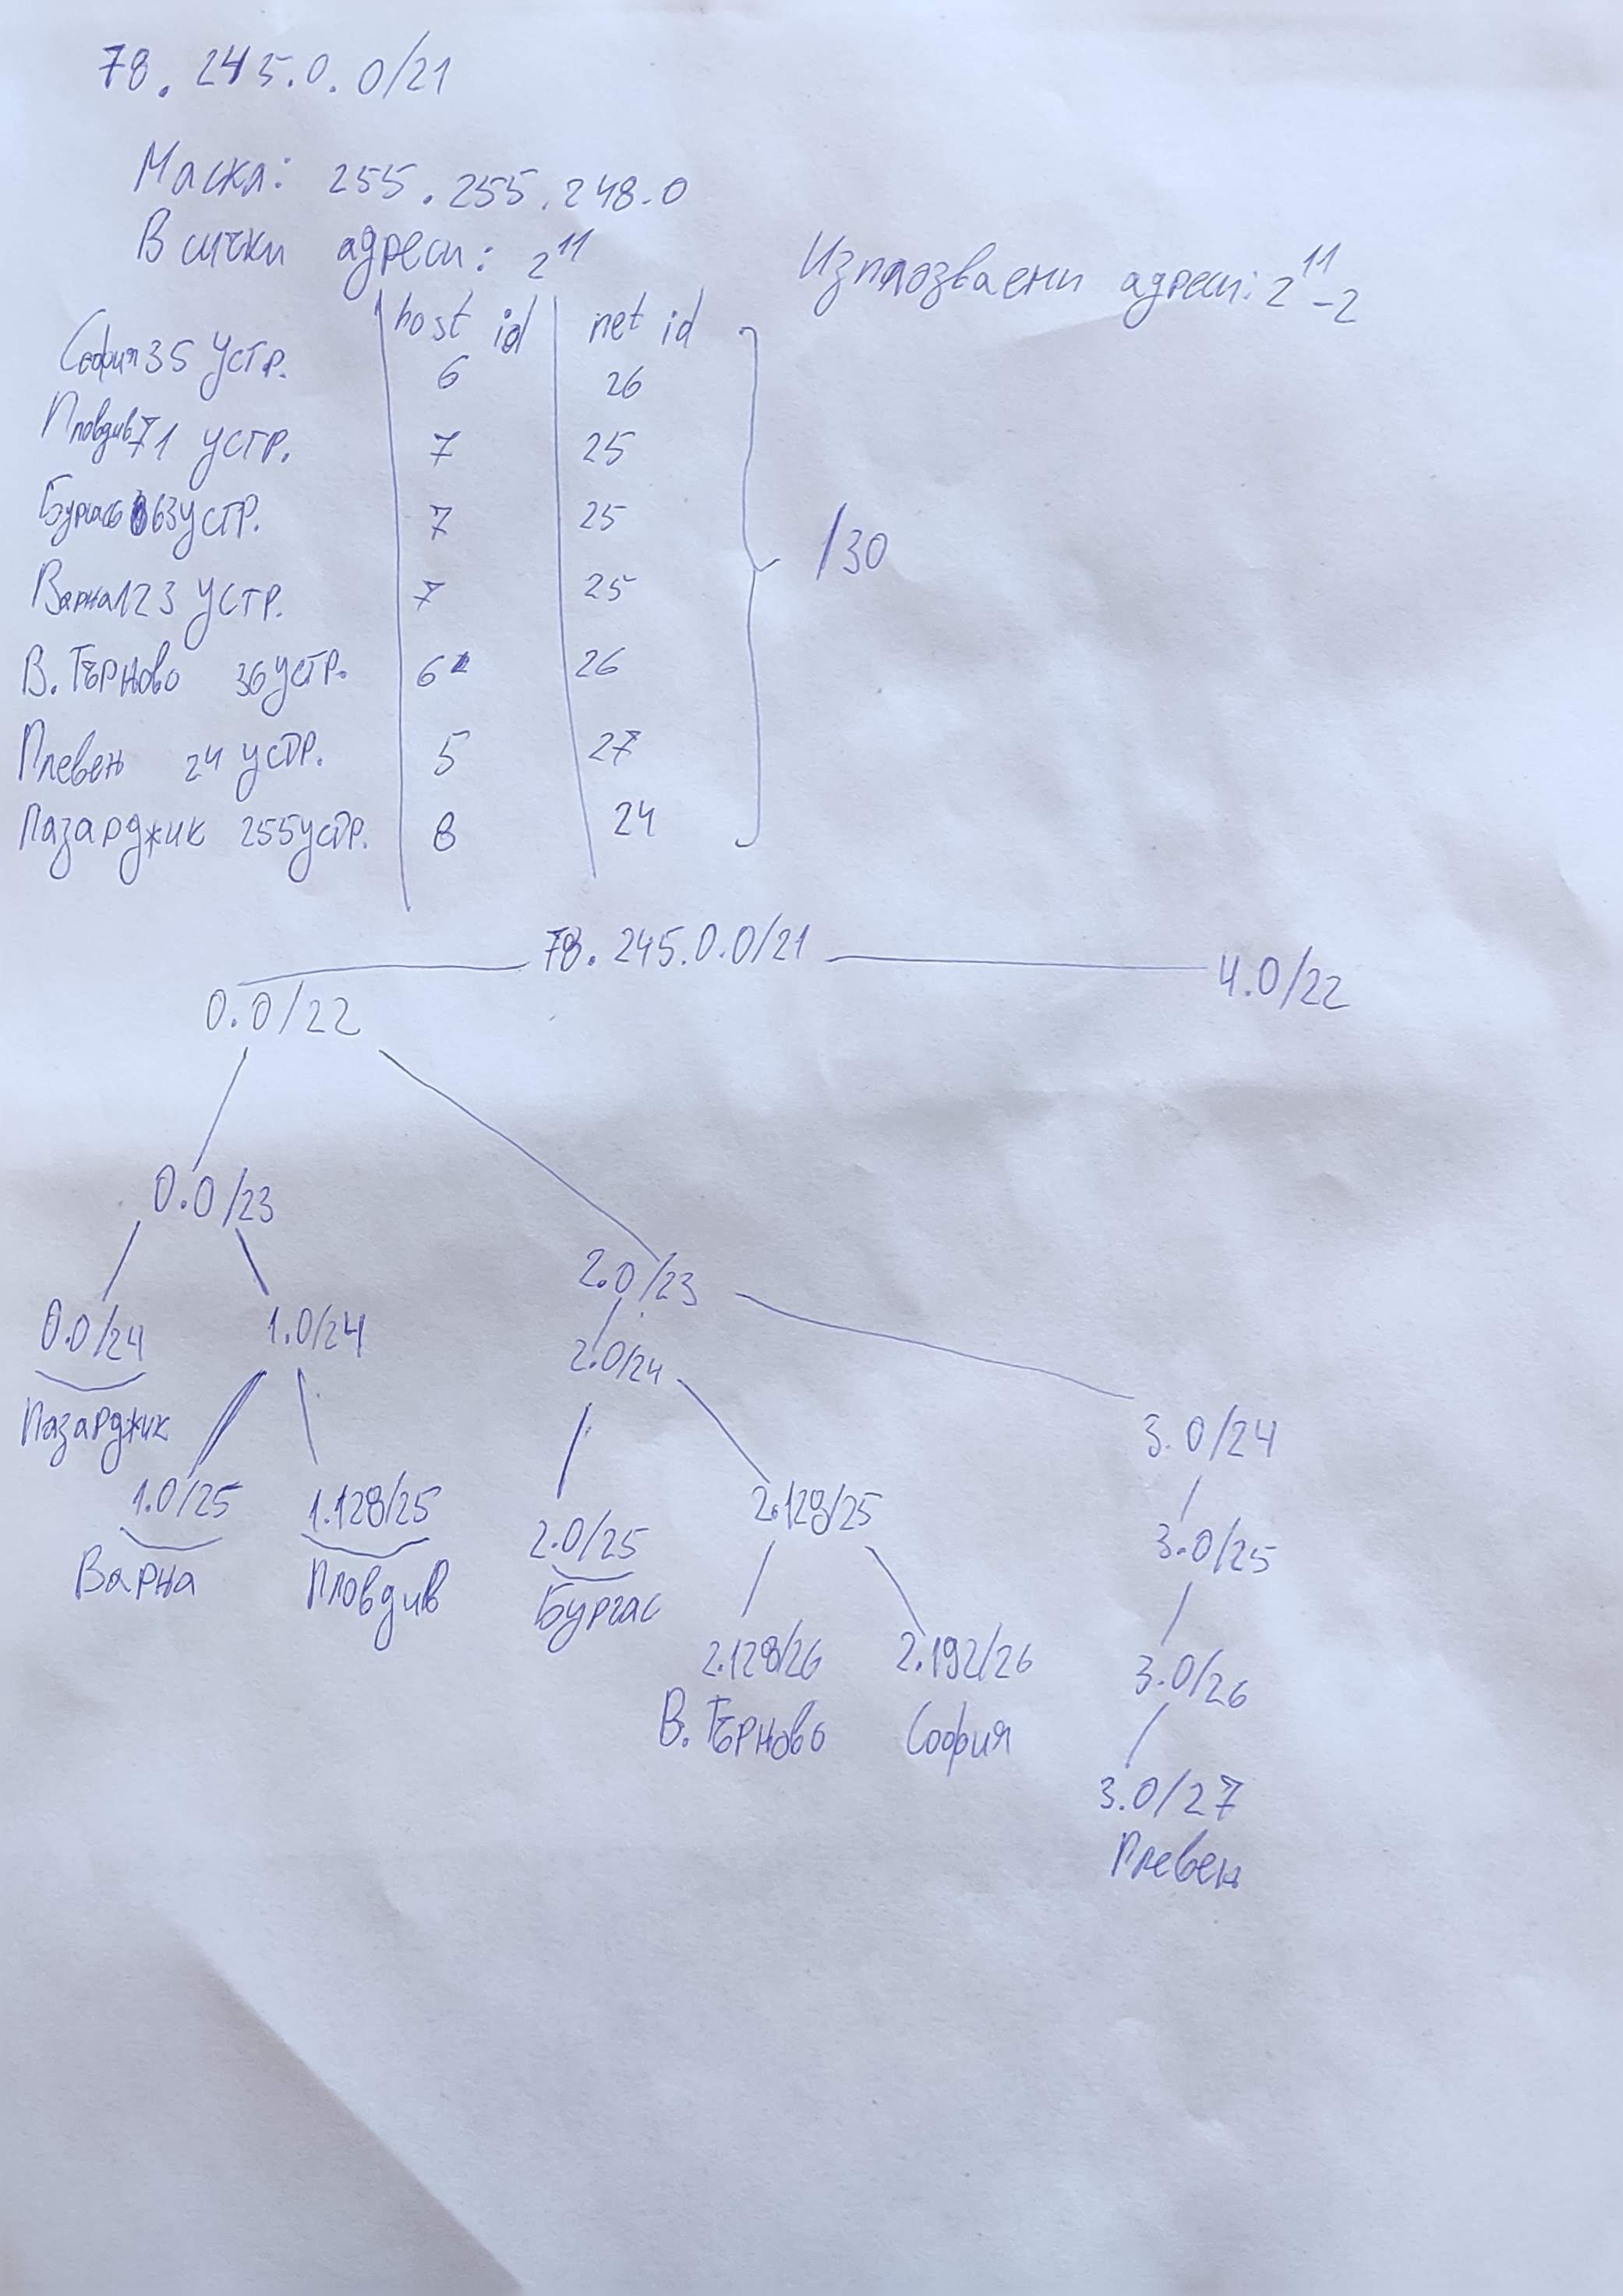 78.245.0.0/21
Маска: 255.255.248.0
Всички адреси: 2^11
Използваеми адреси: 2^11-2
host id net id
София 35 устр. 6 26
Пловдив 71 устр. 7 25
Бургас 63 устр. 7 25
/30
Варна 123 устр. 7 25
В. Търново 36 устр. 6 26
Плевен 24 устр. 5 27
Пазарджик 255 устр. 8 24
78.245.0.0/21
0.0/22 4.0/22
0.0/23
2.0/23
0.0/24 1.0/24 2.0/24
Пазарджик 3.0/24
1.0/25 1.128/25 2.0/25 2.128/25 3.0/25
Варна Пловдив Бургас
2.128/26 2.192/26 3.0/26
В. Търново София
3.0/27
Плевен